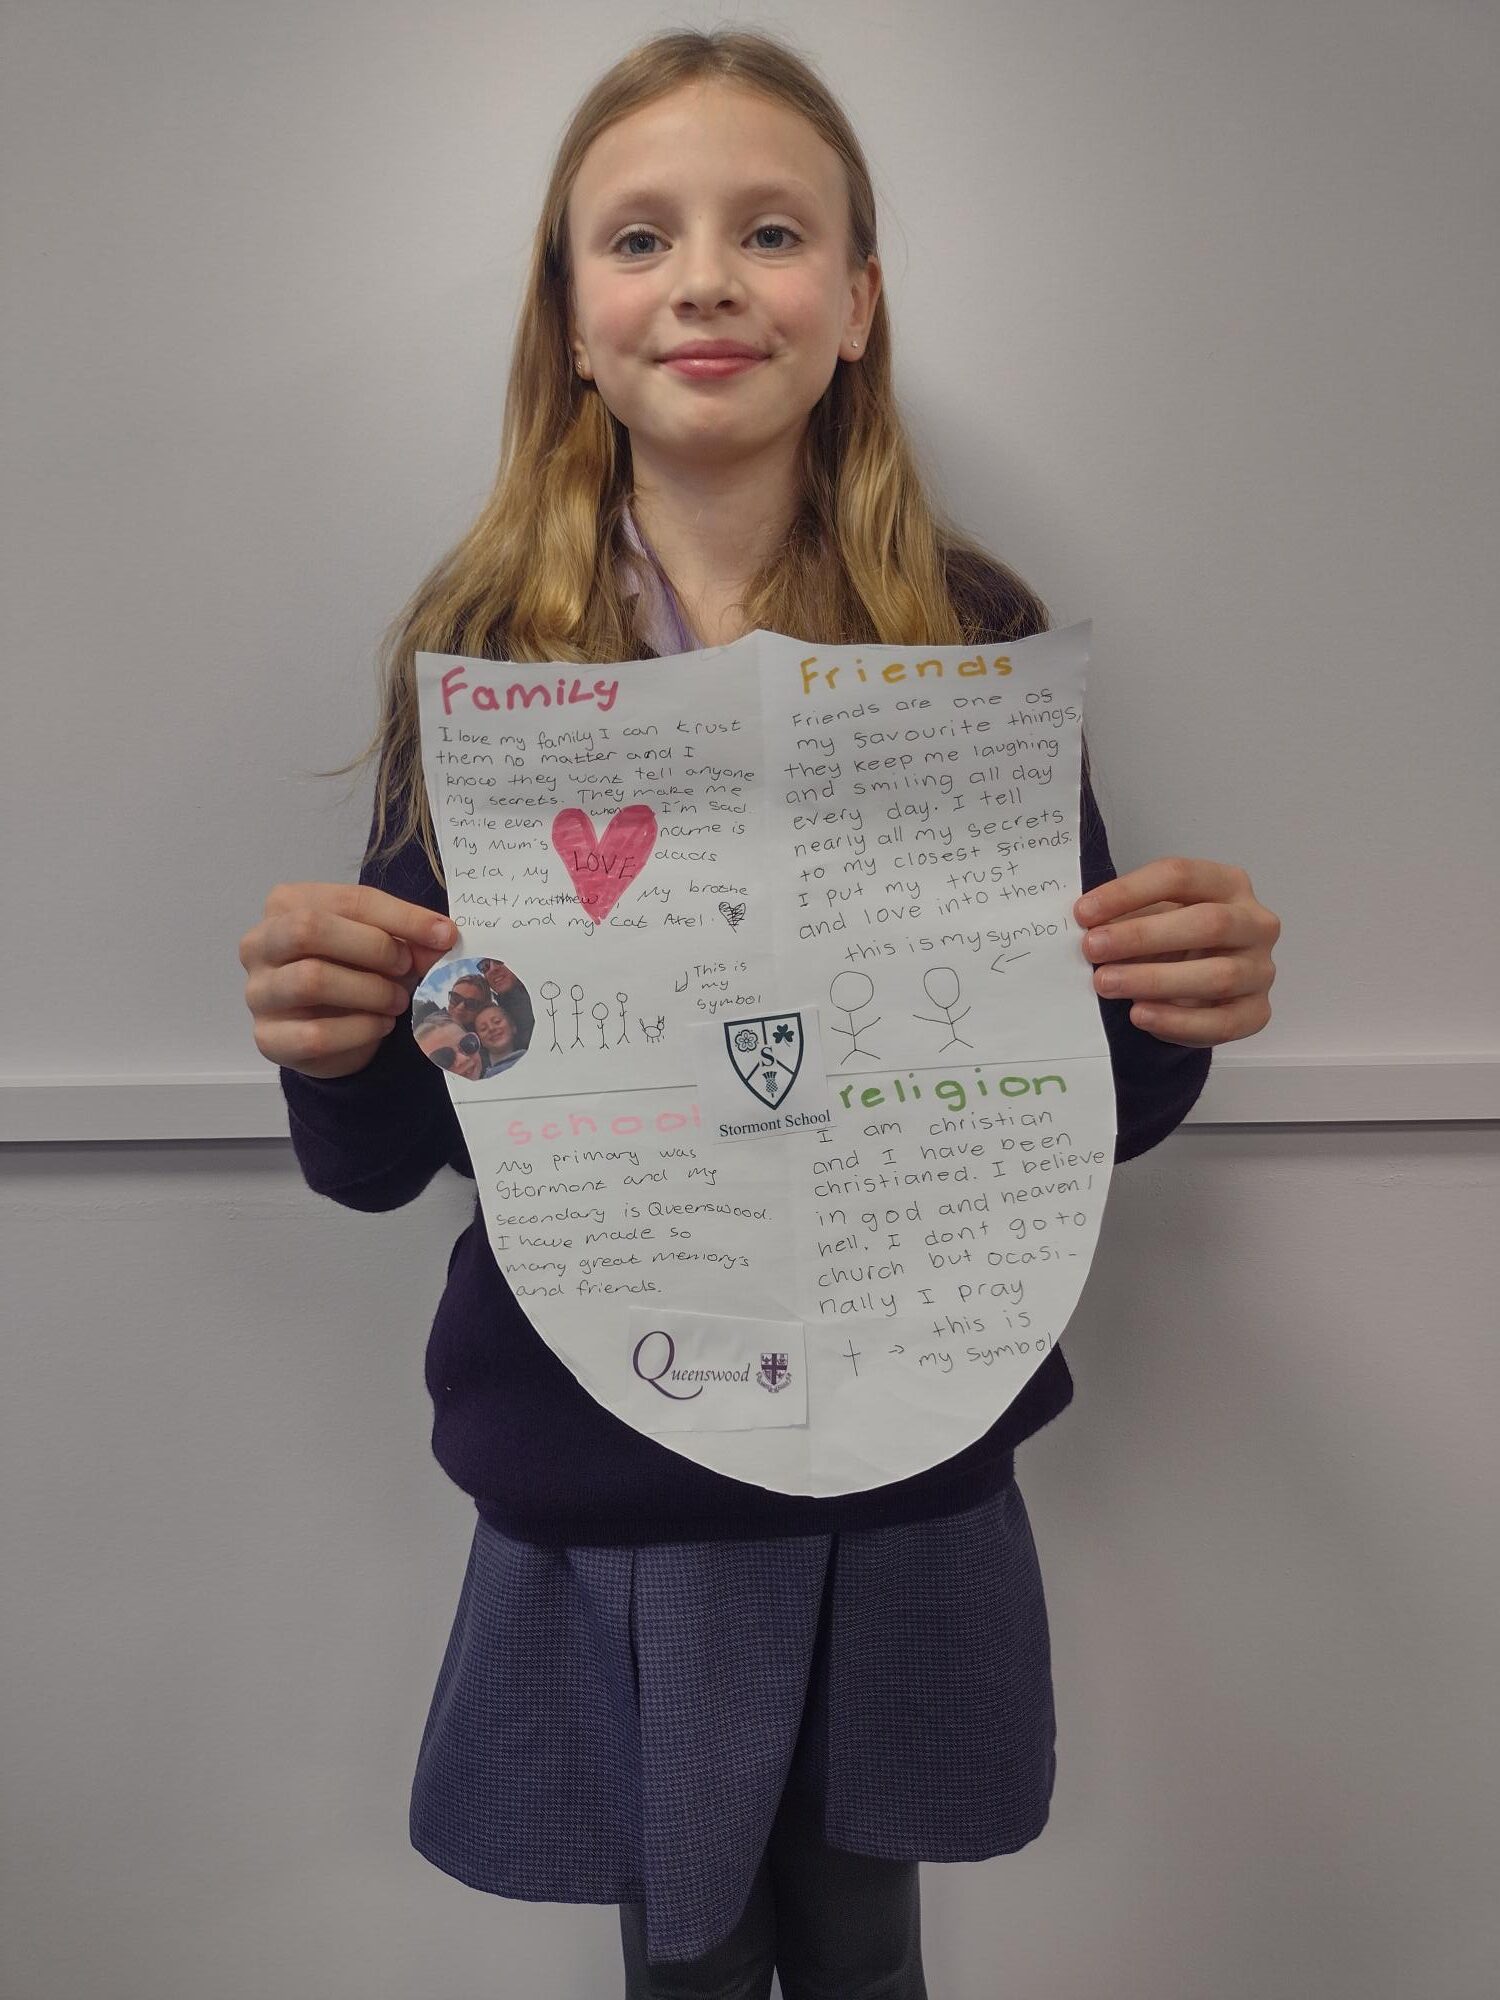 Family
I love my family I can trust
them no matter and I
know they wont tell anyone
my secrets. They make me
smile even when I'm sad.
My Mum's name is
my dads
Matt/matthew, My brothe
Oliver and my cat
LOVE
This is
my
symbol
Friends
Friends are one of
my favourite things,
they keep me laughing
and smiling all day
every day. I tell
nearly all my secrets
to my closest friends.
I put my trust
and love into them.
this is my symbol
S
Stormont School
School
My primary was
Stormont and my
secondary is Queenswood.
I have made so
many great memory's
and friends.
Queenswood
religion
I am christian
and I have been
christianed. I believe
in god and heaven/
hell. I don't go to
church but ocasi-
nally I pray
this is
my symbol